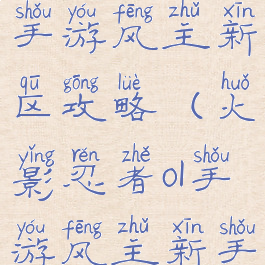 shǒu yóu fēng zhǔ xīn
手游风主新
qū gōng lüè huǒ
区攻略（火
yǐng rěn zhě shǒu
影忍者01手
yóu fēng zhǔ xīn shǒu
游风主新手